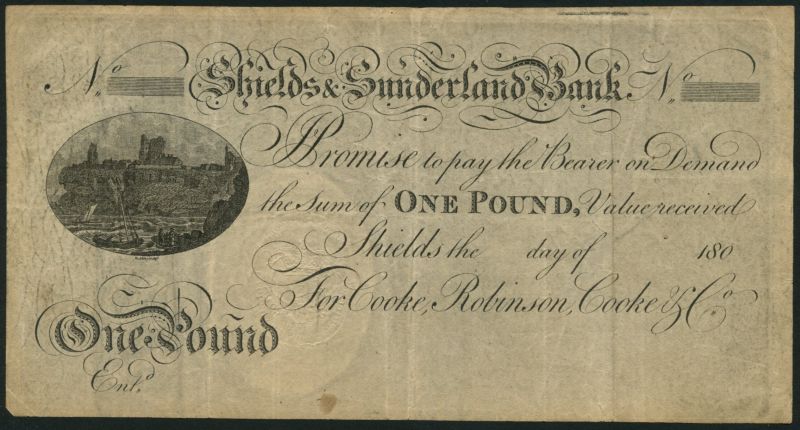 No Shields & Sunderland Bank. No
I Promise to pay the Bearer on Demand
the Sum of ONE POUND, Value received
Shields the day of 180
For Cooke, Robinson, Cooke & Co
One Pound
Entd